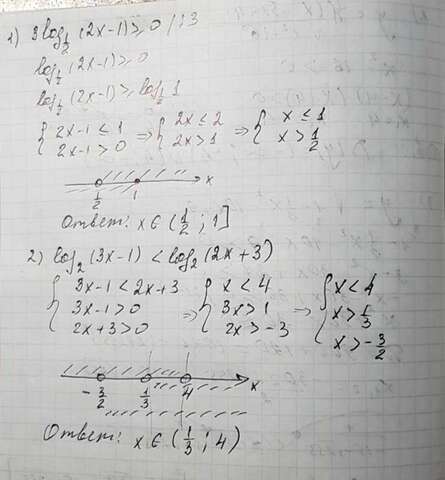 1) 3log_{1/2}(2x-1) ≥ 0 /:3
log_{1/2}(2x-1) ≥ 0
log_{1/2}(2x-1) ≥ log_{1/2} 1
{ 2x-1 ≤ 1 ⇒ { 2x ≤ 2 ⇒ { x ≤ 1
2x-1 > 0 2x > 1 x > 1/2
1/2 1 x
Ответ: x ∈ (1/2 ; 1]
2) log_2(3x-1) < log_2(2x+3)
{ 3x-1 < 2x+3 { x < 4 { x < 4
3x-1 > 0 ⇒ 3x > 1 ⇒ x > 1/3
2x+3 > 0 2x > -3 x > -3/2
-3/2 1/3 4 x
Ответ: x ∈ (1/3 ; 4)